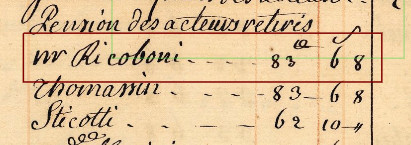 Pension des acteurs retirés
mr Riccoboni - - - 83 ᵗᵗ 6 ˢ 8
Thomassin - - - - 83 - 6 8
Sticotti - - - - - 62 10 - "